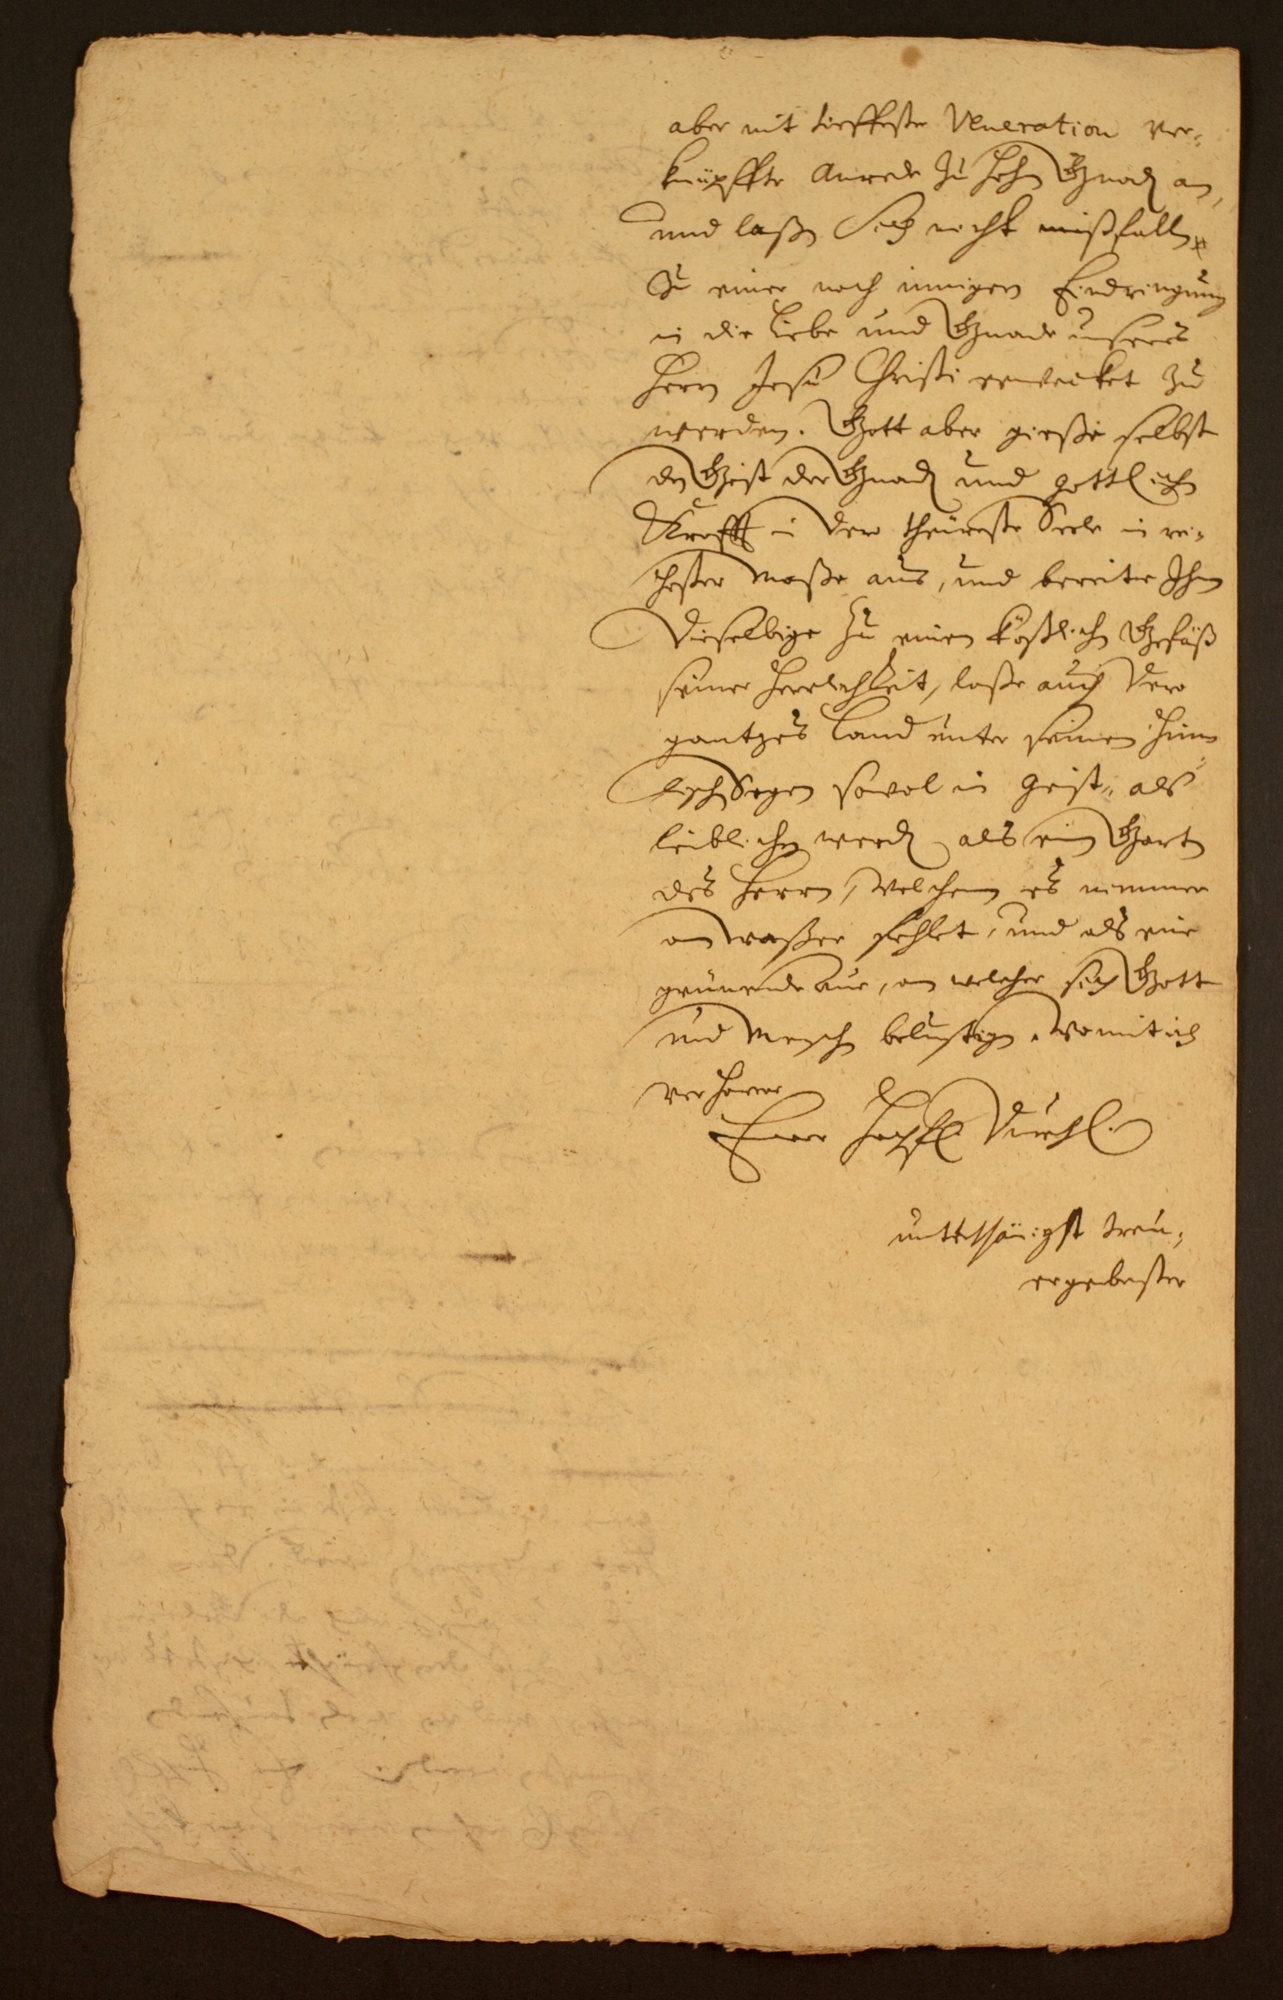 aber mit tieffester Veneration ver-
knüpffte Anrede zu hohen Gnaden an,
und laßen Sich nicht mißfallen
zu einer noch innigern Eindringung
in die Liebe und Gnade unsers
Herrn Jesu Christi erwecket zu
werden. Gott aber gieße selbst
den Geist der Gnaden und göttlichen
Krafft in Dero theureste Seele in rei-
chester Maße aus, und bereite Ihm
dieselbige zu einen köstlichen Gefäß
seiner Herrlichkeit, laße auch Dero
gantzes Land unter seinen him-
lischen Segen sowol in Geist- als
leiblichen werden als ein Garten
des Herrn, welchem es nimmer
an waßer fehlet, und als eine
grünende Aue, an welcher sich Gott
und Mensch belustigen. Womit ich
verharre
Eurer Hochfl. Durchl.
unterthänigst treu-
ergebenster